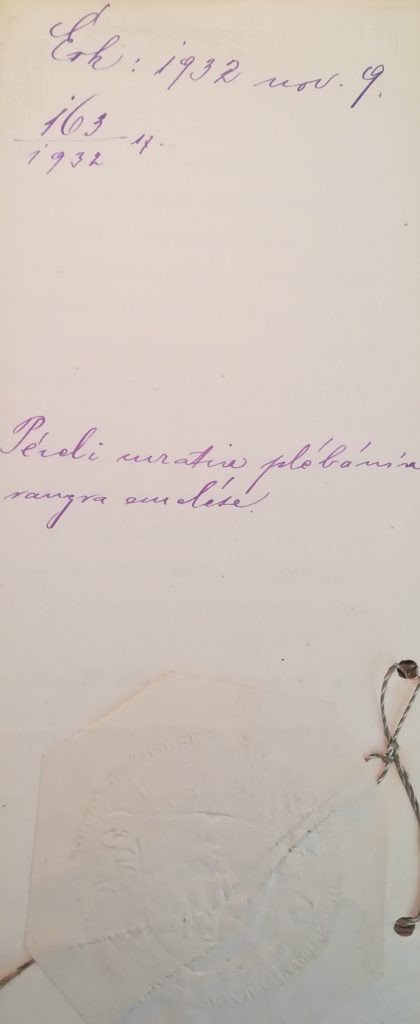 Érk: 1932 nov. 9.
163
1932
Pételi curatia plébánia
rangra emelése.